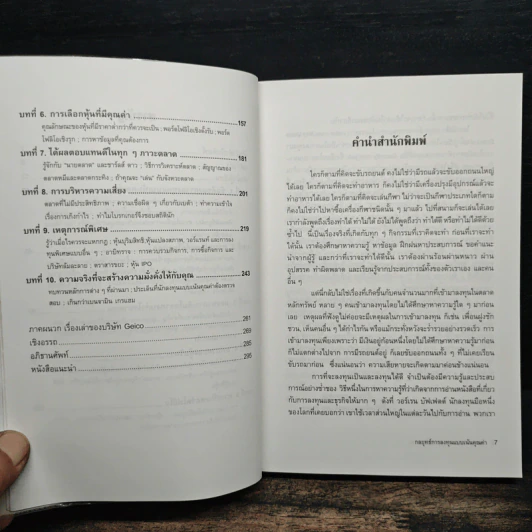 บทที่ 6. การเลือกหุ้นที่มีคุณค่า 157
คุณลักษณะของหุ้นที่มีราคาต่ำกว่าที่ควรจะเป็น ; พอร์ตโฟลิโอเชิงตั้งรับ ; พอร์ต
โฟลิโอเชิงรุก ; การหาข้อมูลที่คุณต้องการ
บทที่ 7. ได้ผลตอบแทนดีในทุก ๆ ภาวะตลาด 181
รู้จักกับ "นายตลาด" และชาร์ลส์ ดาว ; วิธีการวิเคราะห์ตลาด ; สัญญาณของ
ตลาดหมีและตลาดกระทิง ; ถ้าคุณจะ "เล่น" กับจังหวะตลาด
บทที่ 8. การบริหารความเสี่ยง 201
ตลาดที่ไม่มีประสิทธิภาพ ; ความเชื่อผิด ๆ เกี่ยวกับเบต้า ; ทำความเข้าใจ
เรื่องการเก็งกำไร ; ทำไมโบรกเกอร์จึงชอบสถิตินัก
บทที่ 9. เหตุการณ์พิเศษ 219
รู้ว่าเมื่อไหร่ควรจะแหกกฎ ; หุ้นบุริมสิทธิ หุ้นแปลงสภาพ, วอร์แรนท์ และการลง
ทุนพิเศษแบบอื่น ๆ ; อาบิทราจ ; การควบรวมกิจการ, การซื้อกิจการ และ
บริษัทล้มละลาย ; ตราสารขยะ ; หุ้น IPO
บทที่ 10. ความจริงที่จะสร้างความมั่งคั่งให้กับคุณ 243
ทบทวนหลักการต่าง ๆ ที่ผ่านมา ; ประเด็นที่นักลงทุนแบบเน้นคุณค่าต้องตรวจ
สอบ ; เกินกว่าเบนจามิน เกรแฮม
ภาคผนวก เรื่องเล่าของบริษัท Geico 261
เชิงอรรถ 269
อภิธานศัพท์ 285
หนังสือแนะนำ 295
คำนำสำนักพิมพ์
ใครก็ตามที่คิดจะขับรถยนต์ คงไม่ใช่ว่ามีรถแล้วจะขับออกถนนใหญ่
ได้เลย ใครก็ตามที่คิดจะทำอาหาร ก็คงไม่ใช่ว่ามีเครื่องปรุงมีอุปกรณ์แล้วจะ
ทำอาหารได้เลย ใครก็ตามที่คิดจะเล่นกีฬา ไม่ว่าจะเป็นกีฬาประเภทใดก็ตาม
ก็คงไม่ใช่ว่าไปหาซื้อเครื่องกีฬาชนิดนั้น ๆ มาแล้ว ไปที่สนามก็จะเล่นได้เลย
เรากำลังพูดถึงเรื่องที่ว่าทำได้ ทำไม่ได้ ยังไม่ได้พูดถึงว่า ทำได้ดี หรือทำไม่ได้ดีด้วย
ซ้ำไป นี้เป็นเรื่องจริงที่เกิดกับทุก ๆ กิจกรรมที่เราคิดจะทำ ก่อนที่เราจะทำ
ได้นั้น เราต้องศึกษาหาความรู้ หาข้อมูล ฝึกฝนหาประสบการณ์ ขอคำแนะ
นำจากผู้รู้ และกว่าที่เราจะทำได้ดีนั้น เราต้องผ่านร้อนผ่านหนาว ผ่าน
อุปสรรค ทำผิดพลาด และเรียนรู้จากประสบการณ์ทั้งของตัวเราเอง และคน
อื่น ๆ
แต่นึกดีบไม่ใช่เรื่องที่เกิดขึ้นกับคนจำนวนมากที่เข้ามาลงทุนในตลาด
หลักทรัพย์ หลาย ๆ คนเข้ามาลงทุนโดยไม่ได้ศึกษาหาความรู้ใด ๆ มาก่อน
เลย เหตุผลที่ฟังดูไม่ค่อยจะมีเหตุผลในการเข้ามาลงทุน ก็เช่น เพื่อนฝูงชัก
ชวน, เห็นคนอื่น ๆ ได้กำไรกัน หรือแม้กระทั่งหวังจะร่ำรวยอย่างรวดเร็ว การ
เข้ามาลงทุนเพียงเพราะว่า มีเงินอยู่ก้อนหนึ่งโดยไม่ได้ศึกษาหาความรู้มาก่อน
ก็ไม่แตกต่างไปจาก การมีรถยนต์อยู่ ก็เลยขับออกถนนทั้ง ๆ ที่ไม่เคยเรียน
ขับรถมาก่อน ซึ่งแน่นอนว่า ความเสียหายจะเกิดตามมาค่อนข้างแน่นอน
การที่จะลงทุนเป็นและลงทุนได้ดี จำเป็นต้องมีความรู้และประสบ
การณ์อย่างช้ำของ วิธีหนึ่งในการหาความรู้ที่ว่าเกิดจากการอ่านหนังสือที่เกี่ยว
กับการลงทุนและธุรกิจให้มาก ๆ ดังที่ วอร์เรน บัฟเฟตต์ นักลงทุนมือหนึ่ง
ของโลกที่เคยบอกว่า เขาใช้เวลาส่วนใหญ่ในแต่ละวันไปกับการอ่าน พวกเรา
กลยุทธ์การลงทุนแบบเน้นคุณค่า 7